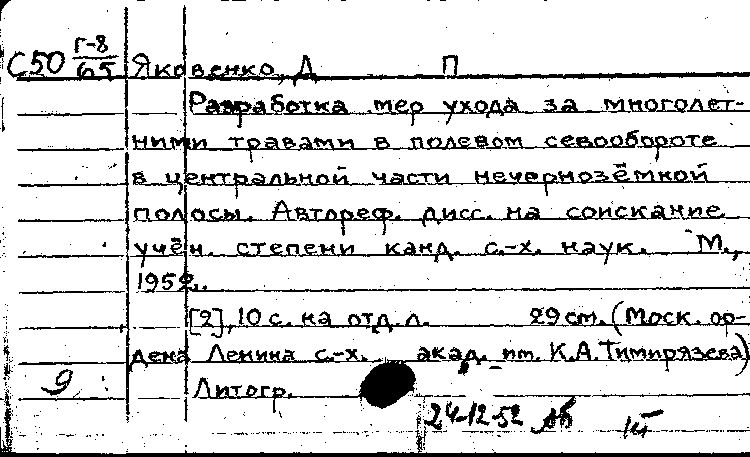 С50 Г-8/65 Яковенко, Д П
Разработка мер ухода за многолет-
ними травами в полевом севообороте
в центральной части нечернозёмной
полосы. Автореф. дисс. на соискание
учён. степени канд. с.-х. наук. М.,
1952.
[2], 10 с. на отд. л. 29 см. (Моск. ор-
дена Ленина с.-х. акад. им. К.А.Тимирязева)
9 Литогр.
24-12-52